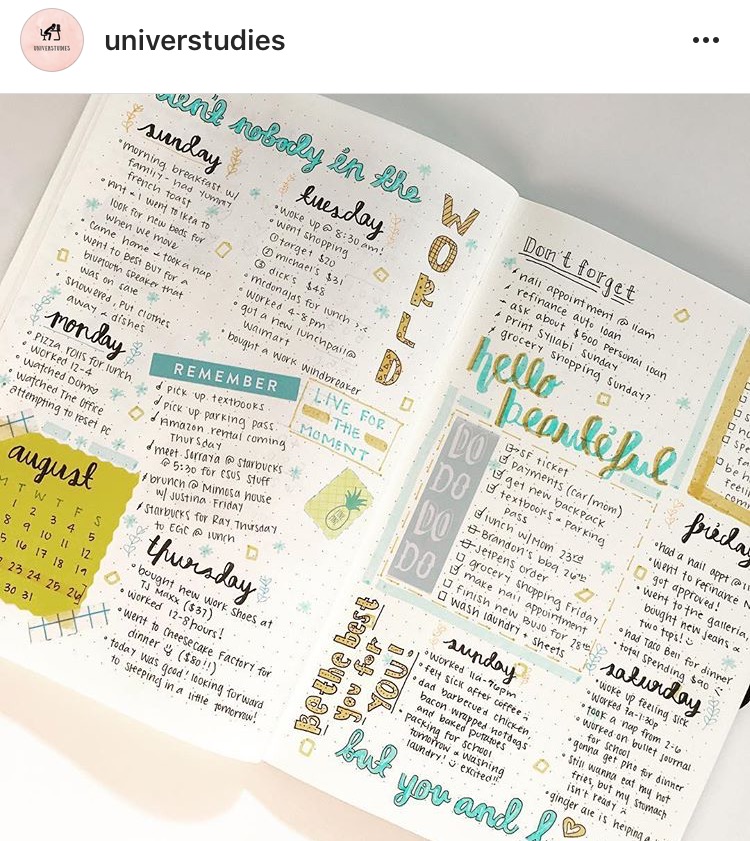 UNIVERSTUDIES
universtudies
ain't nobody in the
WORLD
sunday
morning breakfast w/
family - had yummy
french toast
mint & I went to Ikea to
look for new beds for
when we move
came home & took a nap
went to Best Buy for a
bluetooth speaker that
was on sale
showered, put clothes
away & dishes
monday
pizza rolls for lunch
worked 12-4
watched
watched The Office
attempting to reset PC
august
M T W T F S
1 2 3 4 5
8 9 10 11 12
15 16 17 18 19
22 23 24 25 26
30 31
tuesday
woke up @ 8:30 am!
went shopping
① target $20
② michael's $31
③ dick's $48
mcdonalds for lunch >.<
worked 4-8pm
got a new lunchpail @
Walmart
bought a work windbreaker
REMEMBER
pick up textbooks
pick up parking pass
Amazon rental coming
Thursday
meet Sorraya @ Starbucks
@ 5:30 for ESUS stuff
brunch @ Mimosa house
w/ Justina Friday
Starbucks for Ray Thursday
to EGC @ lunch
LIVE FOR
THE
MOMENT
thursday
bought new work shoes at
TJ Maxx ($37)
worked 12-8 hours!
went to Cheesecake Factory for
dinner ($80!!)
today was good! looking forward
to sleeping in a little tomorrow!
Don't forget
nail appointment @ 11am
refinance auto loan
- ask about $500 personal loan
print syllabi Sunday
grocery shopping Sunday?
hello
beautiful
DO
DO
DO
DO
SF ticket
payments (car/mom)
get new backpack
textbooks & parking
pass
lunch w/Mom 23rd
Brandon's bba 26th
Jetpens order
grocery shopping Friday
make nail appointment
finish new BUJO for 28th
wash laundry & sheets
Be the best
you for
YOU!
sunday
worked 11a-7pm
felt sick after coffee
dad barbecued chicken
bacon wrapped hotdogs
and baked potatoes
packing for school
tomorrow & washing
laundry! excited!!
friday
had a nail appt @ 11
went to refinance
got approved!
went to the galleria
bought new jeans &
two tops!
had Taco Bell for dinner
total spending $90
saturday
woke up feeling sick
worked 7a-1:30p
took a nap from 2-6
worked on bullet journal
for school
gonna get pho for dinner
still wanna eat my hot
fries, but my stomach
isn't ready
ginger ale is helping a
but you and I